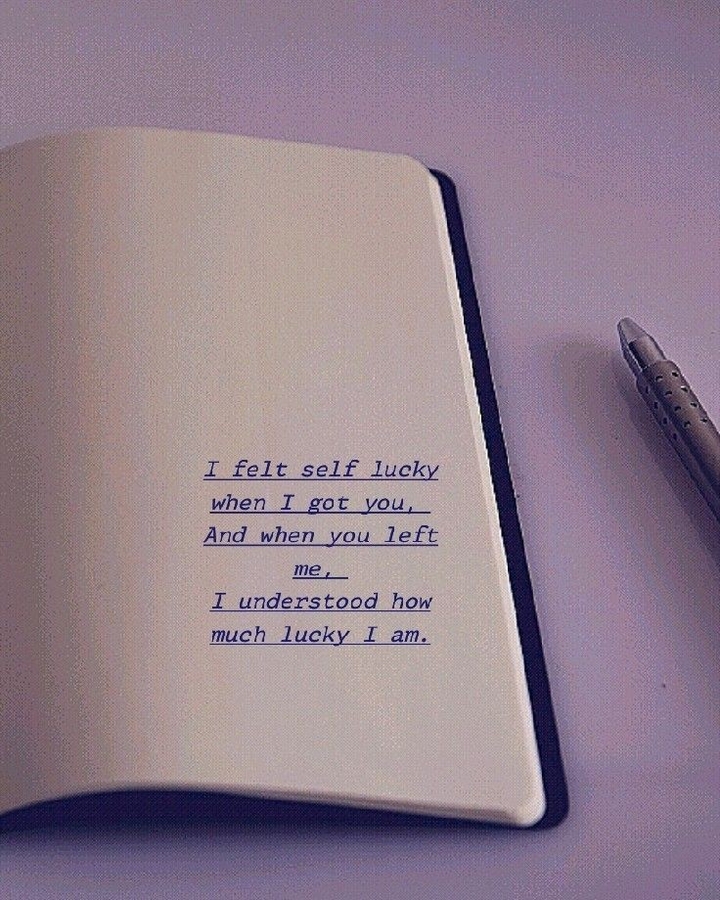 I felt self lucky
when I got you,
And when you left
me,
I understood how
much lucky I am.